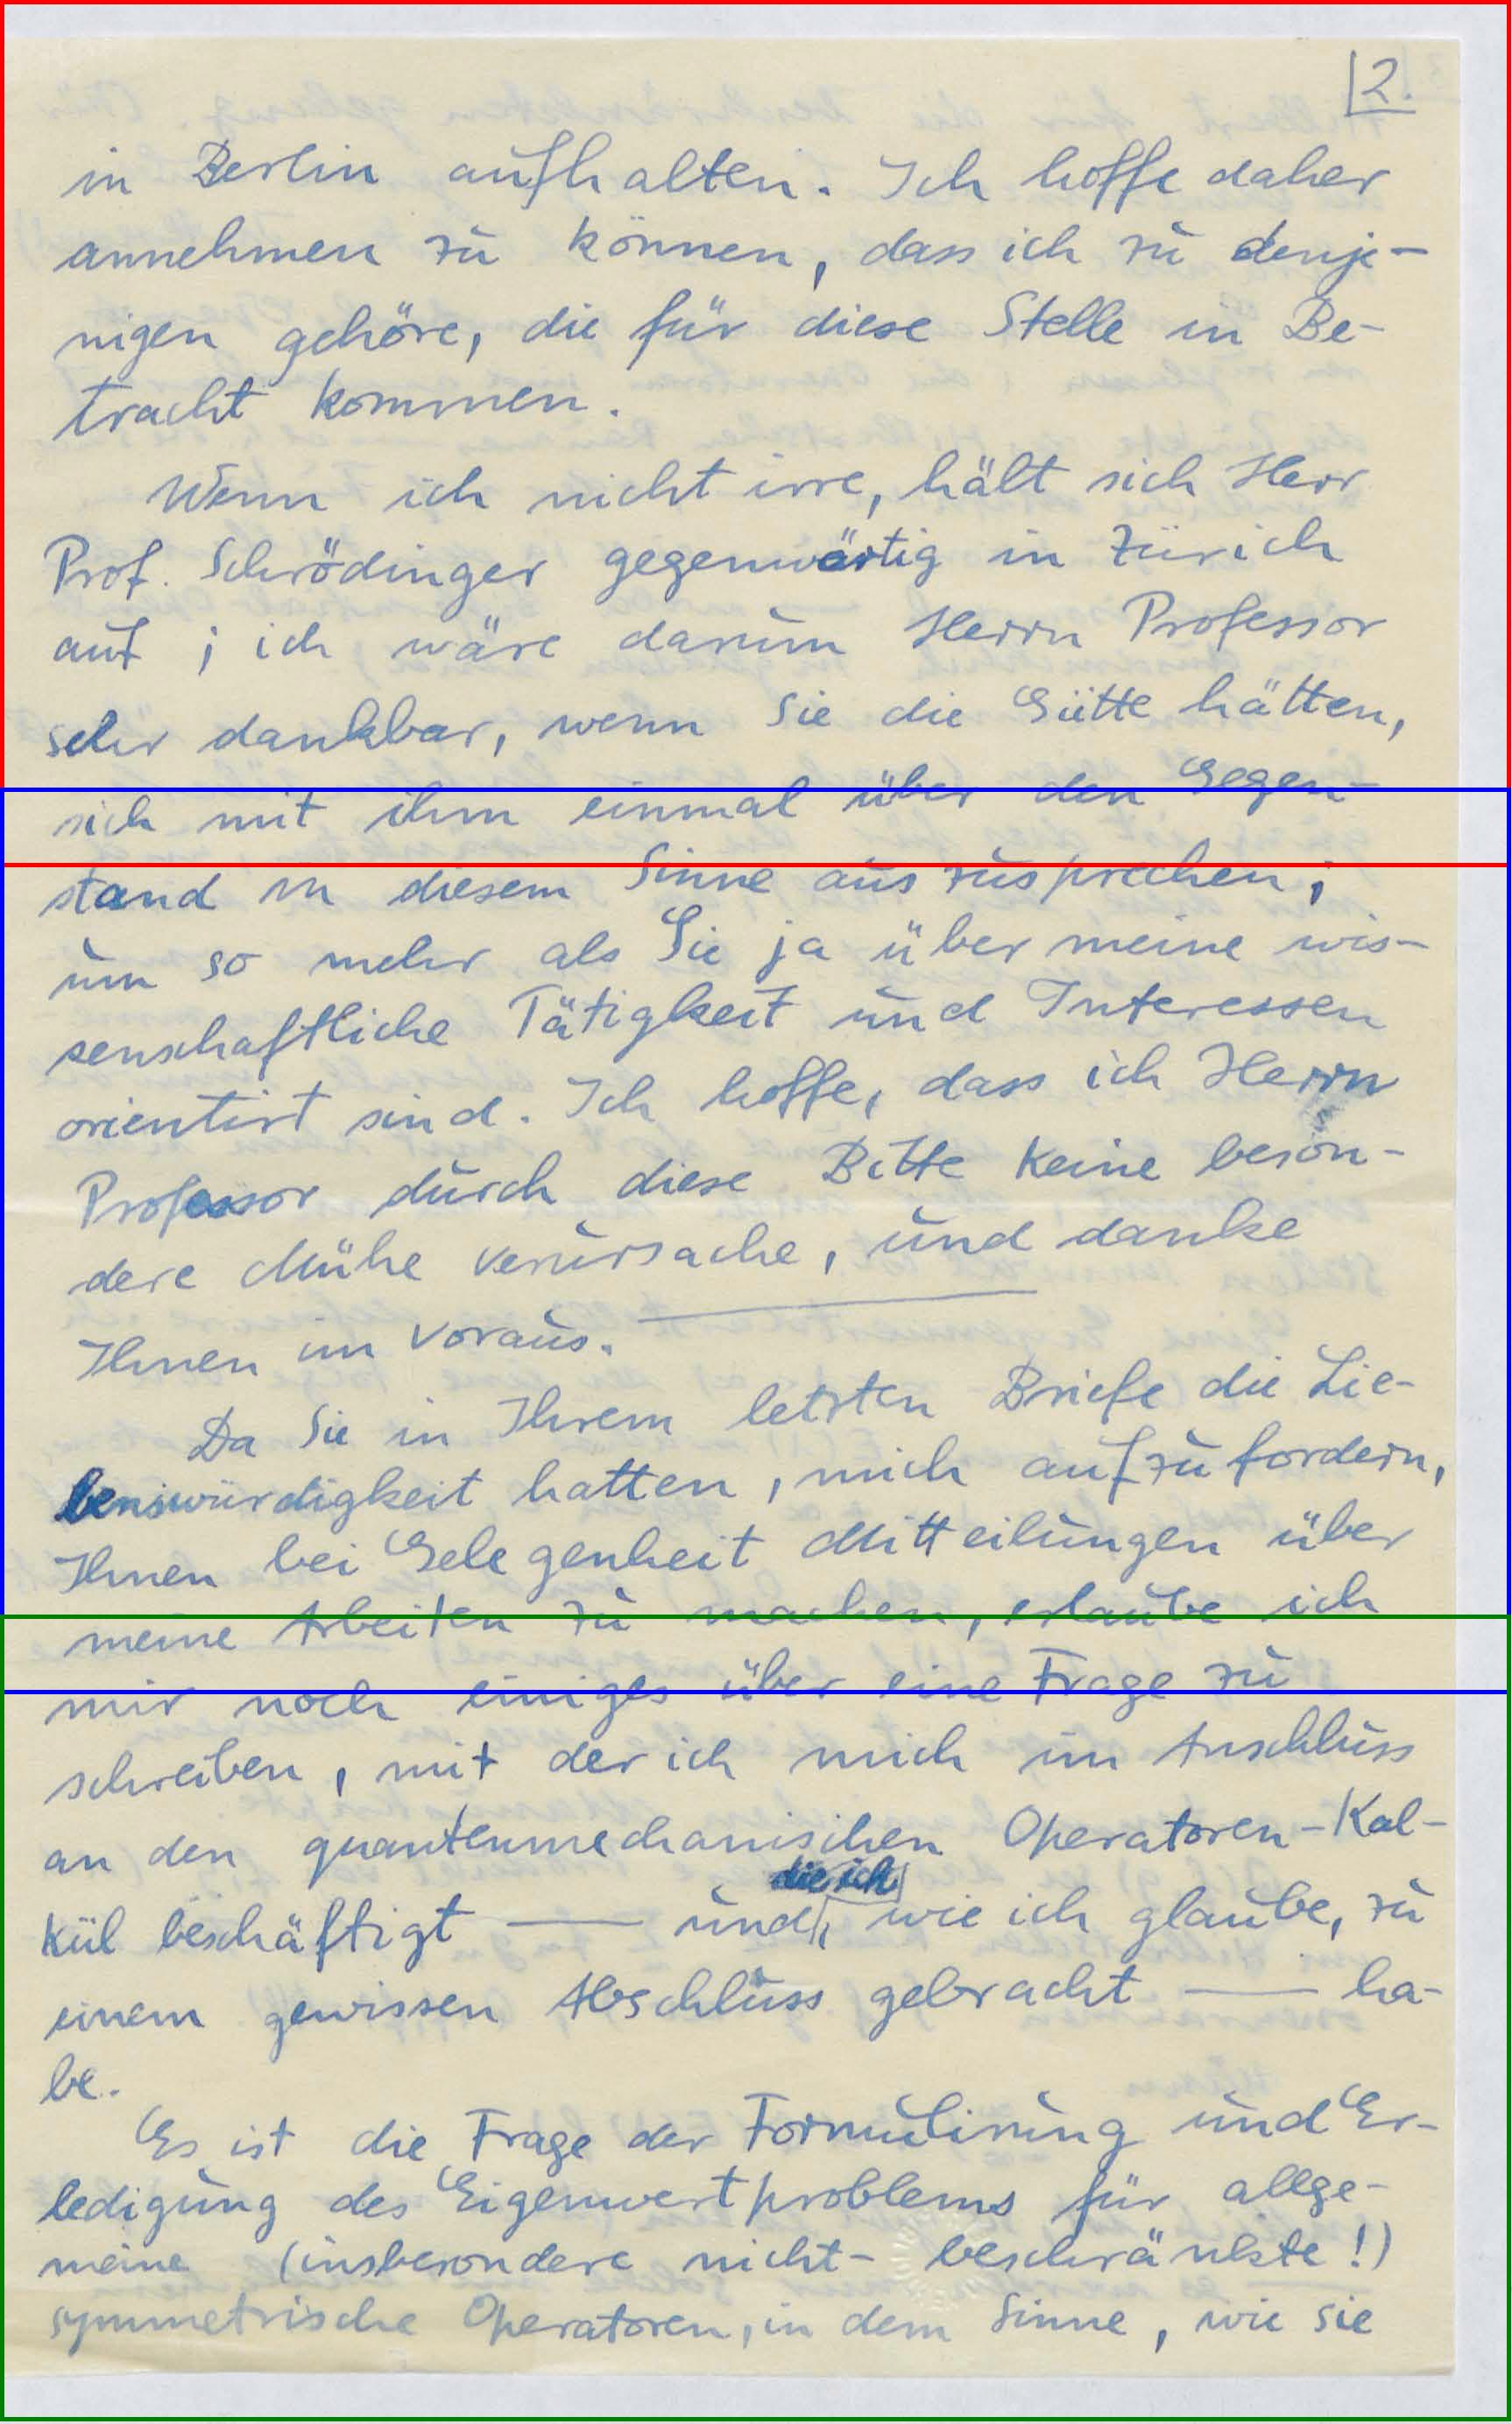 2.
in Berlin aufhalten. Ich hoffe daher
annehmen zu können, dass ich zu denje-
nigen gehöre, die für diese Stelle in Be-
tracht kommen.
Wenn ich nicht irre, hält sich Herr
Prof. Schrödinger gegenwärtig in Zürich
auf ; ich wäre darum Herrn Professor
sehr dankbar, wenn Sie die Gütte hätten,
sich mit ihm einmal über den Gegen-
stand in diesem Sinne auszusprechen,
um so mehr als Sie ja über meine wis-
senschaftliche Tätigkeit und Interessen
orientirt sind. Ich hoffe, dass ich Herrn
Professor durch diese Bitte keine beson-
dere Mühe verursache, und danke
Ihnen im voraus. —
Da Sie in Ihrem letzten Briefe die Lie-
benswürdigkeit hatten, mich aufzufordern,
Ihnen bei Gelegenheit Mitteilungen über
meine Arbeiten zu machen, erlaube ich
mir noch einiges über eine Frage zu
schreiben, mit der ich mich im Anschluss
an den quantenmechanischen Operatoren-Kal-
die ich
kül beschäftigt — und, wie ich glaube, zu
einem gewissen Abschluss gebracht — ha-
be.
Es ist die Frage der Formulirung und Er-
ledigung des Eigenwertproblems für allge-
meine (insbesondere nicht- beschränkte!)
symmetrische Operatoren, in dem Sinne, wie sie